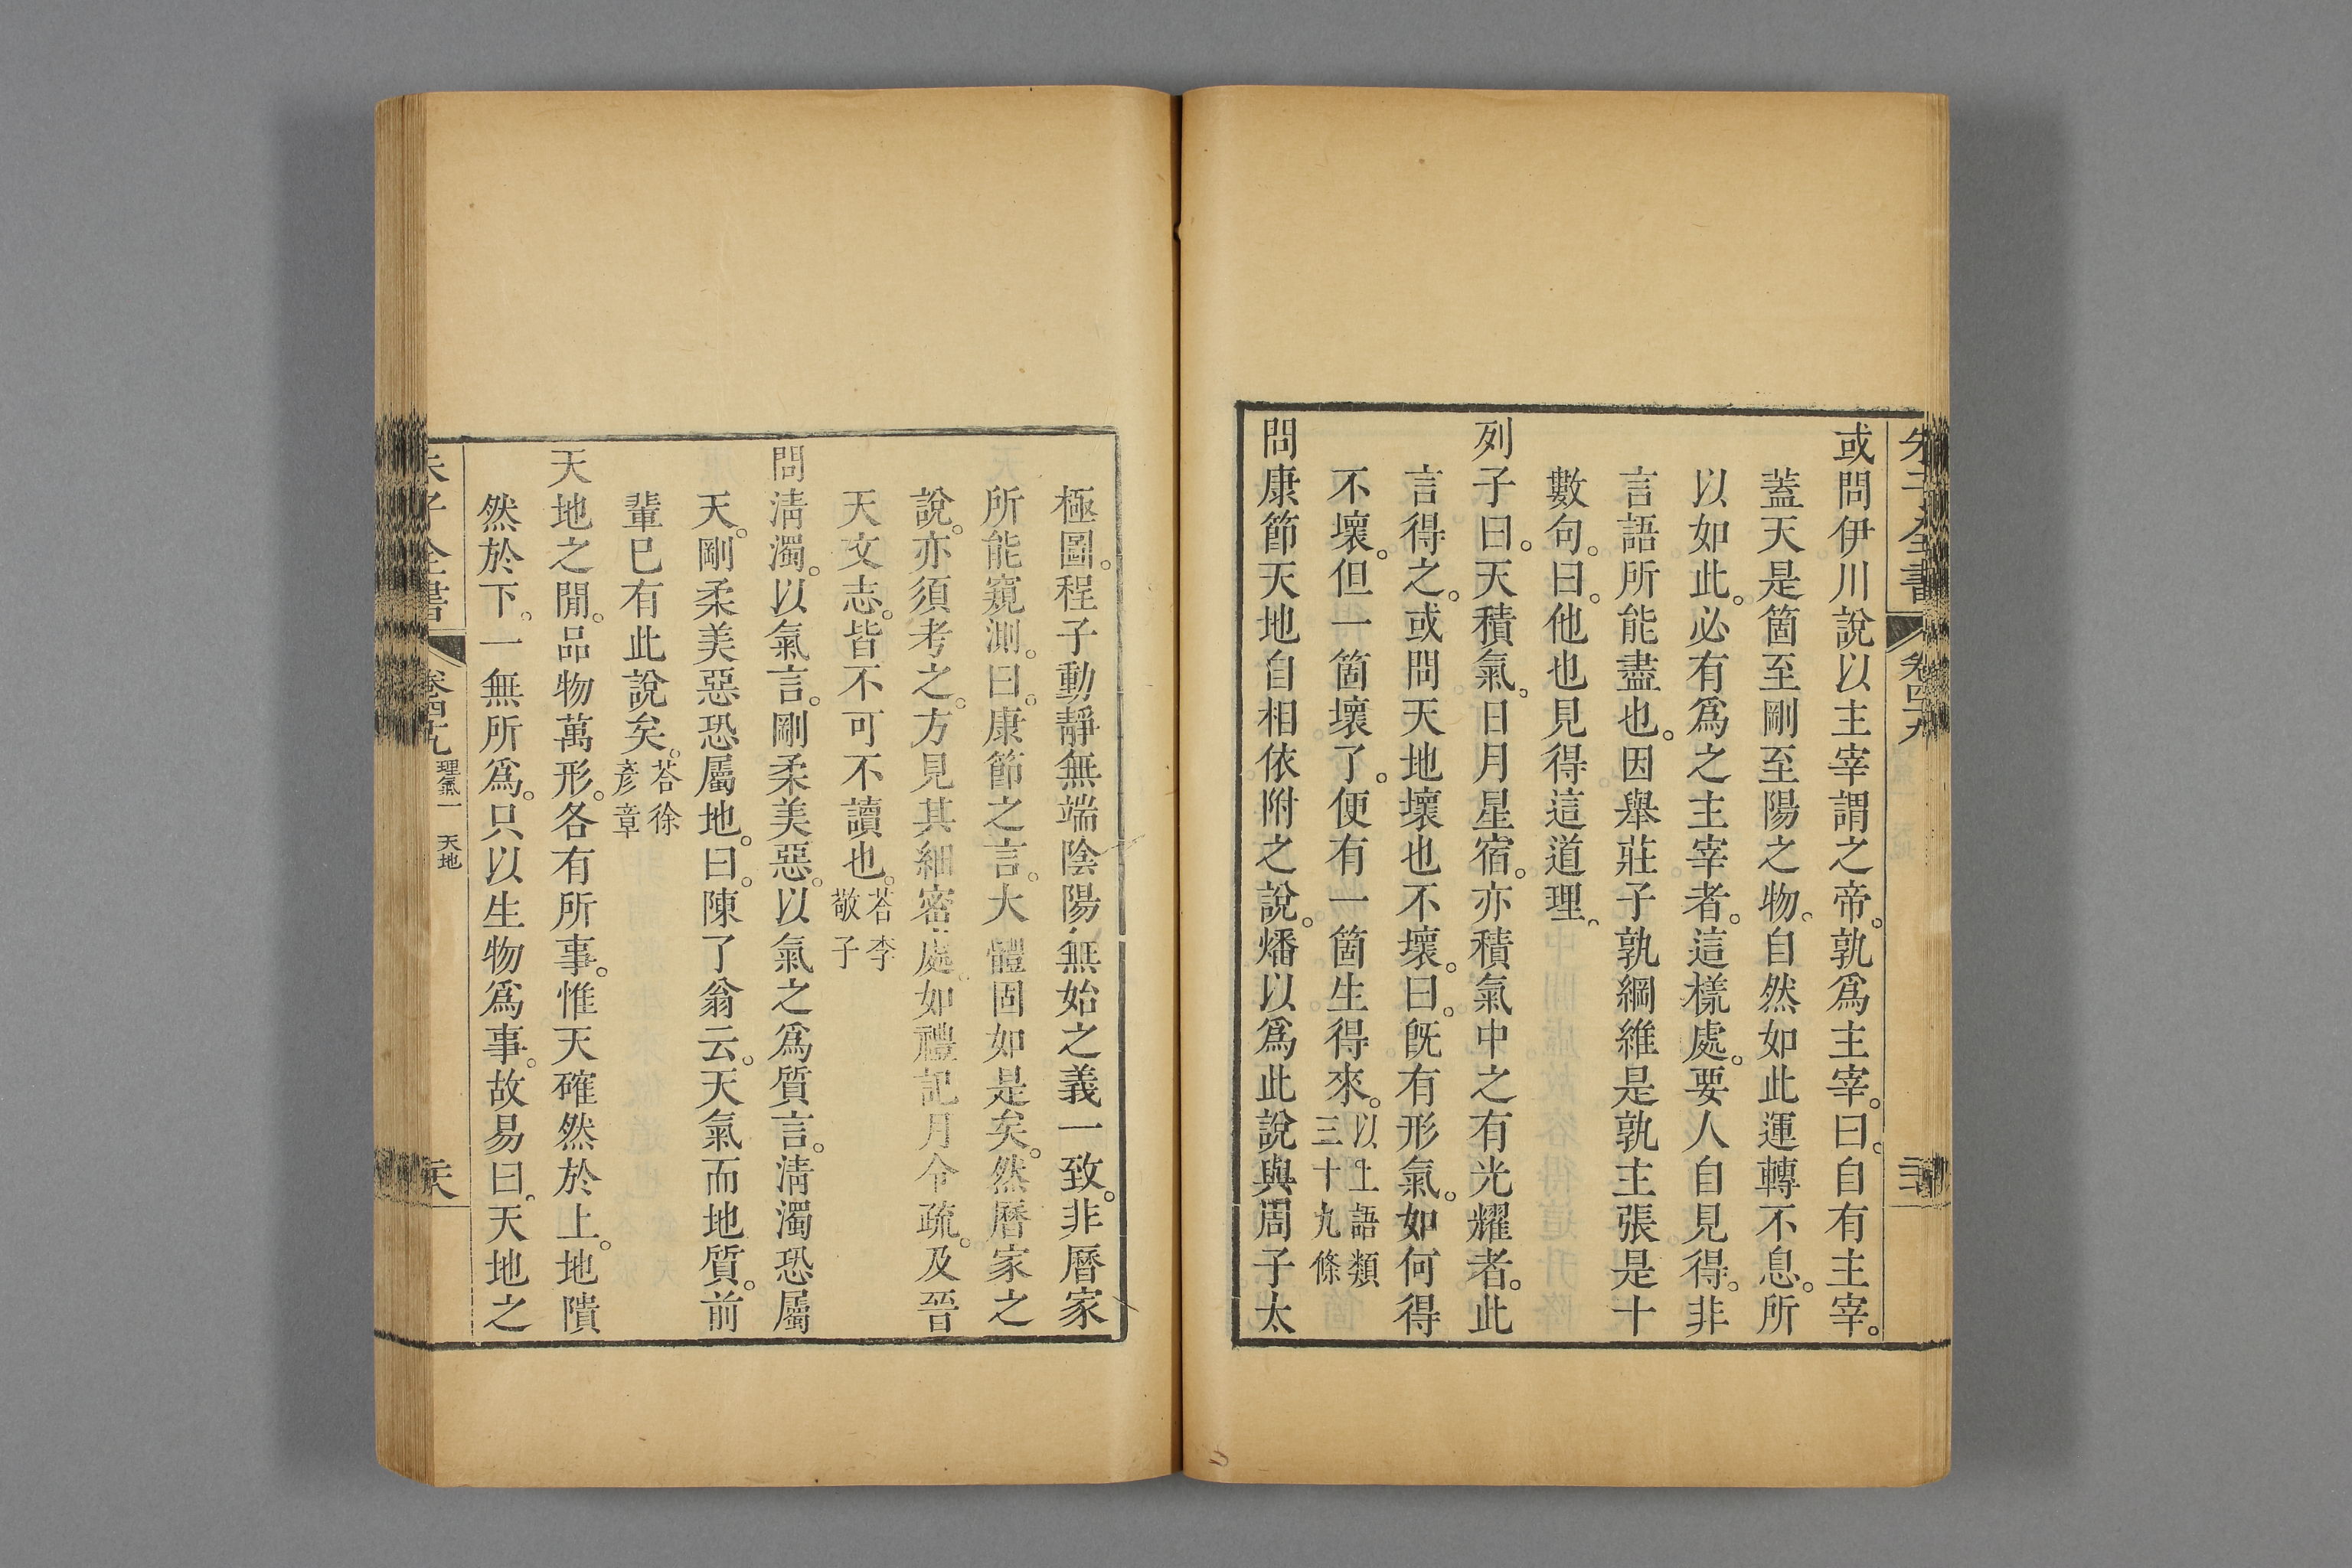 朱子全書 卷四十九
或問伊川說以主宰謂之帝。孰爲主宰。曰。自有主宰。
蓋天是箇至剛至陽之物。自然如此運轉不息。所
以如此。必有爲之主宰者。這樣處。要人自見得。非
言語所能盡也。因舉莊子孰綱維是孰主張是十
數句。曰。他也見得這道理。
列子曰。天積氣。日月星宿。亦積氣中之有光耀者。此
言得之。或問天地壞也不壞。曰。旣有形氣。如何得
不壞。但一箇壞了。便有一箇生得來。以上語類三十九條
問康節天地自相依附之說。燔以爲此說與周子太
極圖。程子動靜無端陰陽無始之義一致。非曆家
所能窺測。曰。康節之言。大體固如是矣。然曆家之
說。亦須考之。方見其細密處。如禮記月令疏。及晉
天文志。皆不可不讀也。荅李敬子
問淸濁。以氣言。剛柔美惡。以氣之爲質言。淸濁恐屬
天。剛柔美惡恐屬地。曰。陳了翁云。天氣而地質。前
輩已有此說矣。荅徐彥章
天地之閒。品物萬形。各有所事。惟天確然於上。地隤
然於下。一無所爲。只以生物爲事。故易曰。天地之
朱子全書 卷四十九 理氣一 天地